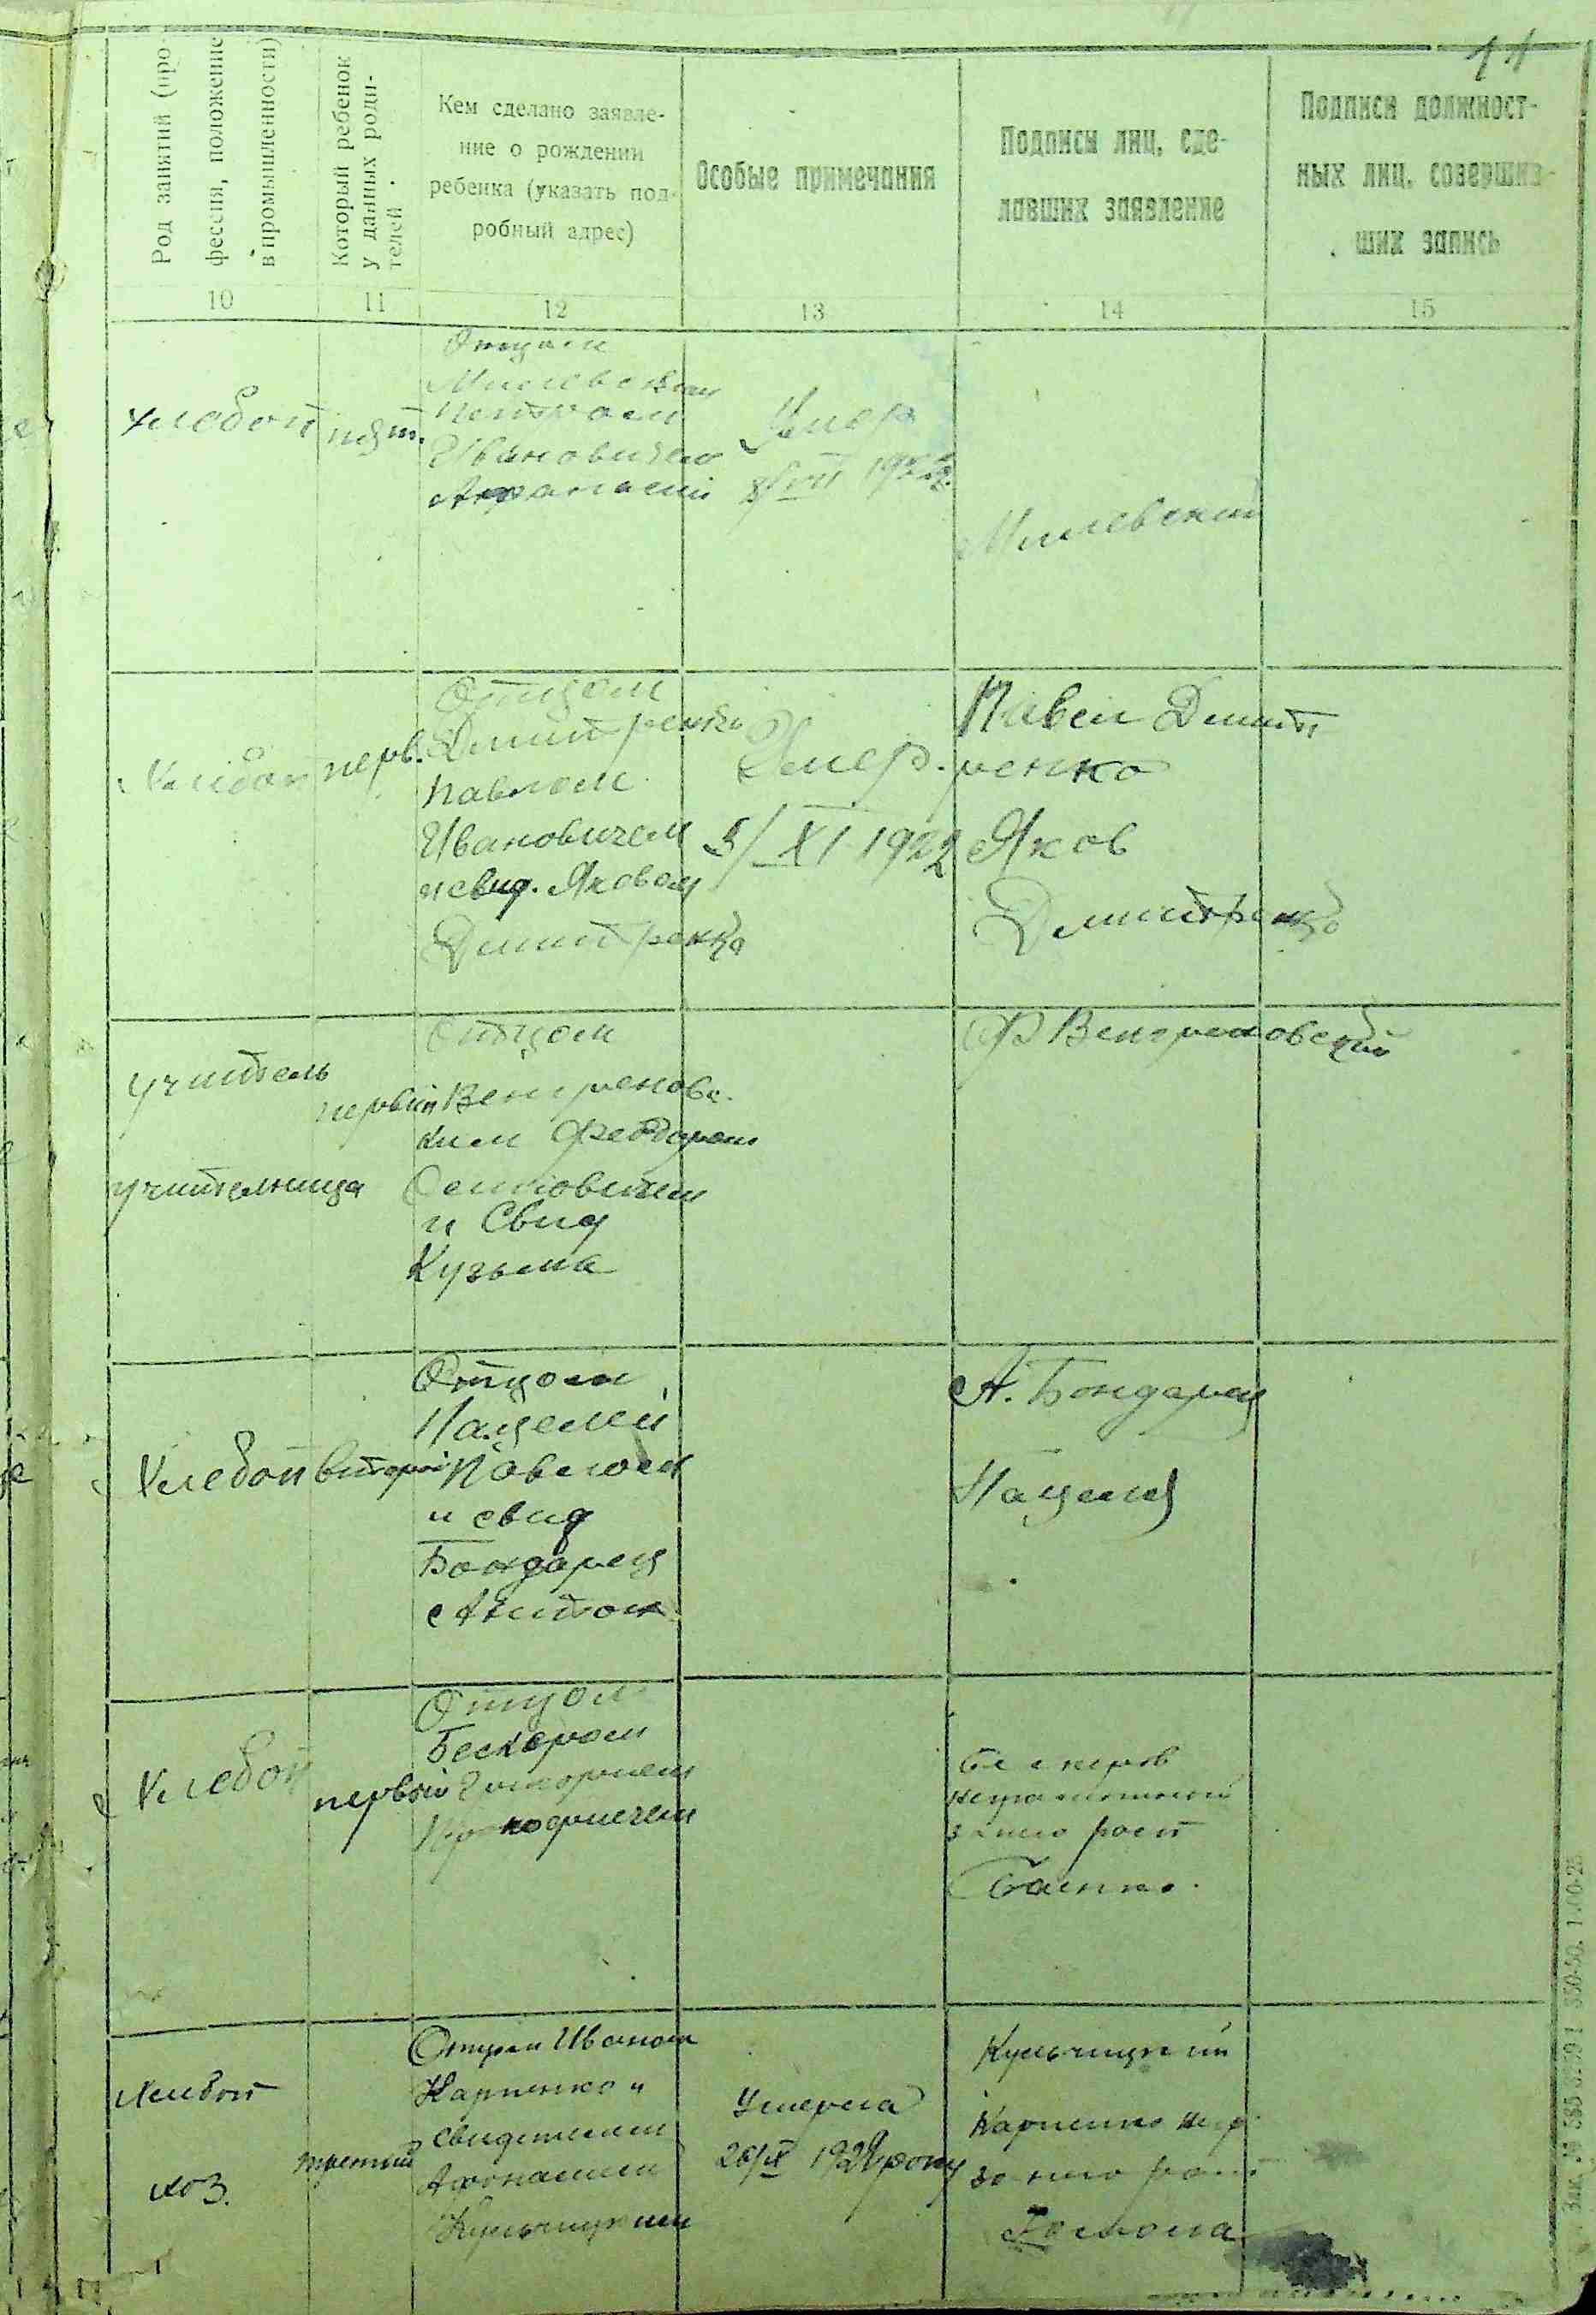 11
Род занятий (про-
фессия, положение
в промышленности)
Который ребенок
у данных роди-
телей.
Кем сделано заявле-
ние о рождении
ребенка (указать под-
робный адрес)
Особые примечания
Подписи лиц, сде-
лавших заявление
Подписи должност-
ных лиц, совершив-
ших запись
10
11
12
13
14
15
хлебоп
пят.
Отцом
Милевским
Петром
Ивановичем
Афанасий
Умер
8/VII 1922
Милевский
Хлебоп
перв.
Отцом
Дмитренко
Павлом
Ивановичем
и свид. Яковом
Дмитренко
Умер.
5/XI 1922
Павел Дмит
ренко
Яков
Дмитренко
учитель
учительница
первый
Отцом
Венгреновс.
ким Феодором
и Свид
Кузьма
Ф Венгреновский
Хлебоп
второй
Отцом
Нацелей
Павлом
и свид
Бондарец
Антон
А. Бондарец
Нацелей
Хлебоп
первый
Отцом
Бескером
Григорием
неграмотный
за него росп
Хлебоп
хоз.
третий
Отцом Иваном
Карпенко и
свидетелем
Афонасием
Кульчицким
Умерла
26/IX 1922 року
Кульчицкий
Карпенко негр.
за него росп